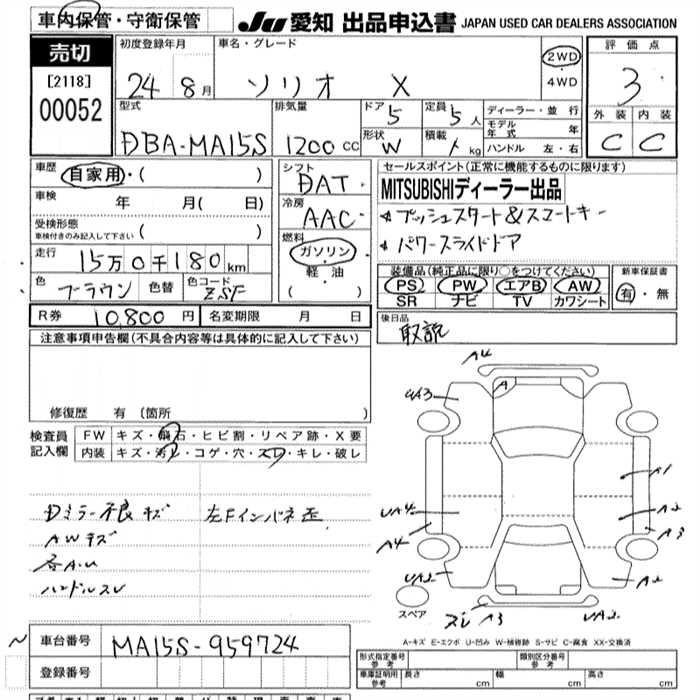 車内保管・守衛保管 JU 愛知 出品申込書 JAPAN USED CAR DEALERS ASSOCIATION
売切
[2118]
00052
初度登録年月 車名・グレード 2WD 評価点
24 8月 ソリオ X 4WD 3
型式 排気量 ドア 定員 ディーラー・並行 外装 内装
5 5人 モデル年式 年
DBA-MA15S 1200cc 形状 積載 ハンドル 左・右 C C
W kg
車歴 自家用・( )
車検 年 月( 日)
受検形態
車検付きのみ記入して下さい ( )
走行 15万0千180km
色 ブラウン 色替 色コード ZSF
シフト
DAT
冷房
AAC
燃料
ガソリン
軽油
( )
セールスポイント(正常に機能するものに限ります)
MITSUBISHIディーラー出品
プッシュスタート&スマートキー
パワースライドドア
装備品(純正品に限り○をつけてください) 新車保証書
PS PW エアB AW 有・無
SR ナビ TV カワシート
R券 10,800円 名変期限 月 日
後日品
取説
注意事項申告欄(不具合内容等は具体的に記入して下さい)
修復歴 有(箇所 )
検査員 FW キズ・飛石・ヒビ割・リペア跡・X要
記入欄 内装 キズ・汚レ・コゲ・穴・スレ・キレ・破レ
Dミラー不良キズ 左Fインパネ歪
AWキズ
各A.U
ハンドルスレ
A4
UA3 A
A1
UA4 A2
A4 A3
UA2 A2
スレ A3 UA2
スペア
A-キズ E-エクボ U-凹み W-補修跡 S-サビ C-腐食 XX-交換済
車台番号 MA15S-959724
登録番号
形式指定番号 参考 類別区分番号 参考
車庫証明用 参考 長さ cm 幅 cm 高さ cm